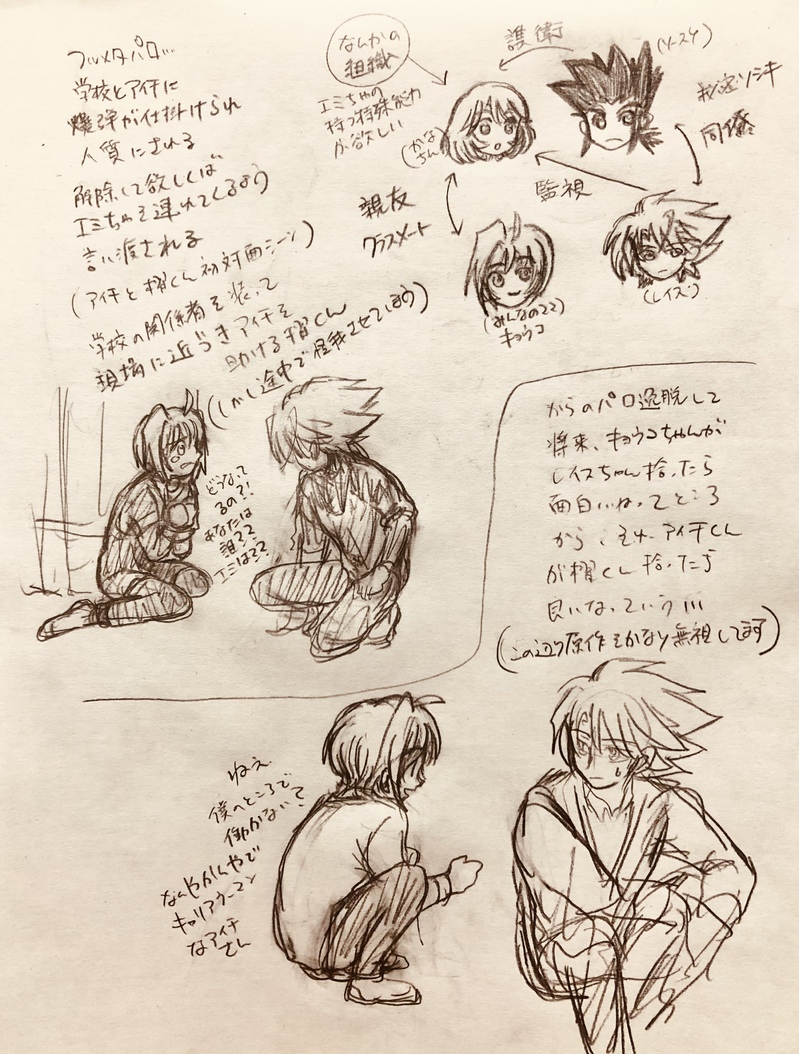 フルメタパロ…
学校とアイチに
爆弾が仕掛けられ
人質にされる
解除して欲しくば
エミちゃを連れてくるよう
言い渡される
(アイチと櫂くん初対面シーン)
学校の関係者を装って
現場に近づきアイチを
助ける櫂くん
(しかし途中で怪我させてしまう)
なんかの
組織
エミちゃの
持つ特殊能力
が欲しい
護衛
(ソースケ)
(かな
ちゃん)
秘密ソシキ
同僚
監視
親友
クラスメート
(レイズ)
(みんなのココ)
キョウコ
どうなって
るの?!
あなたは
誰??
エミは??
からのパロ逸脱して
将来、キョウコちゃんが
レイズちゃん拾ったら
面白いねってところ
から アイチくん
が櫂くん拾ったら
良いなっていう…
(この辺り原作をかなり無視してます)
ねえ
僕のところで
働かない?
なんやかんやで
キャリアウーマン
なアイチ
さん